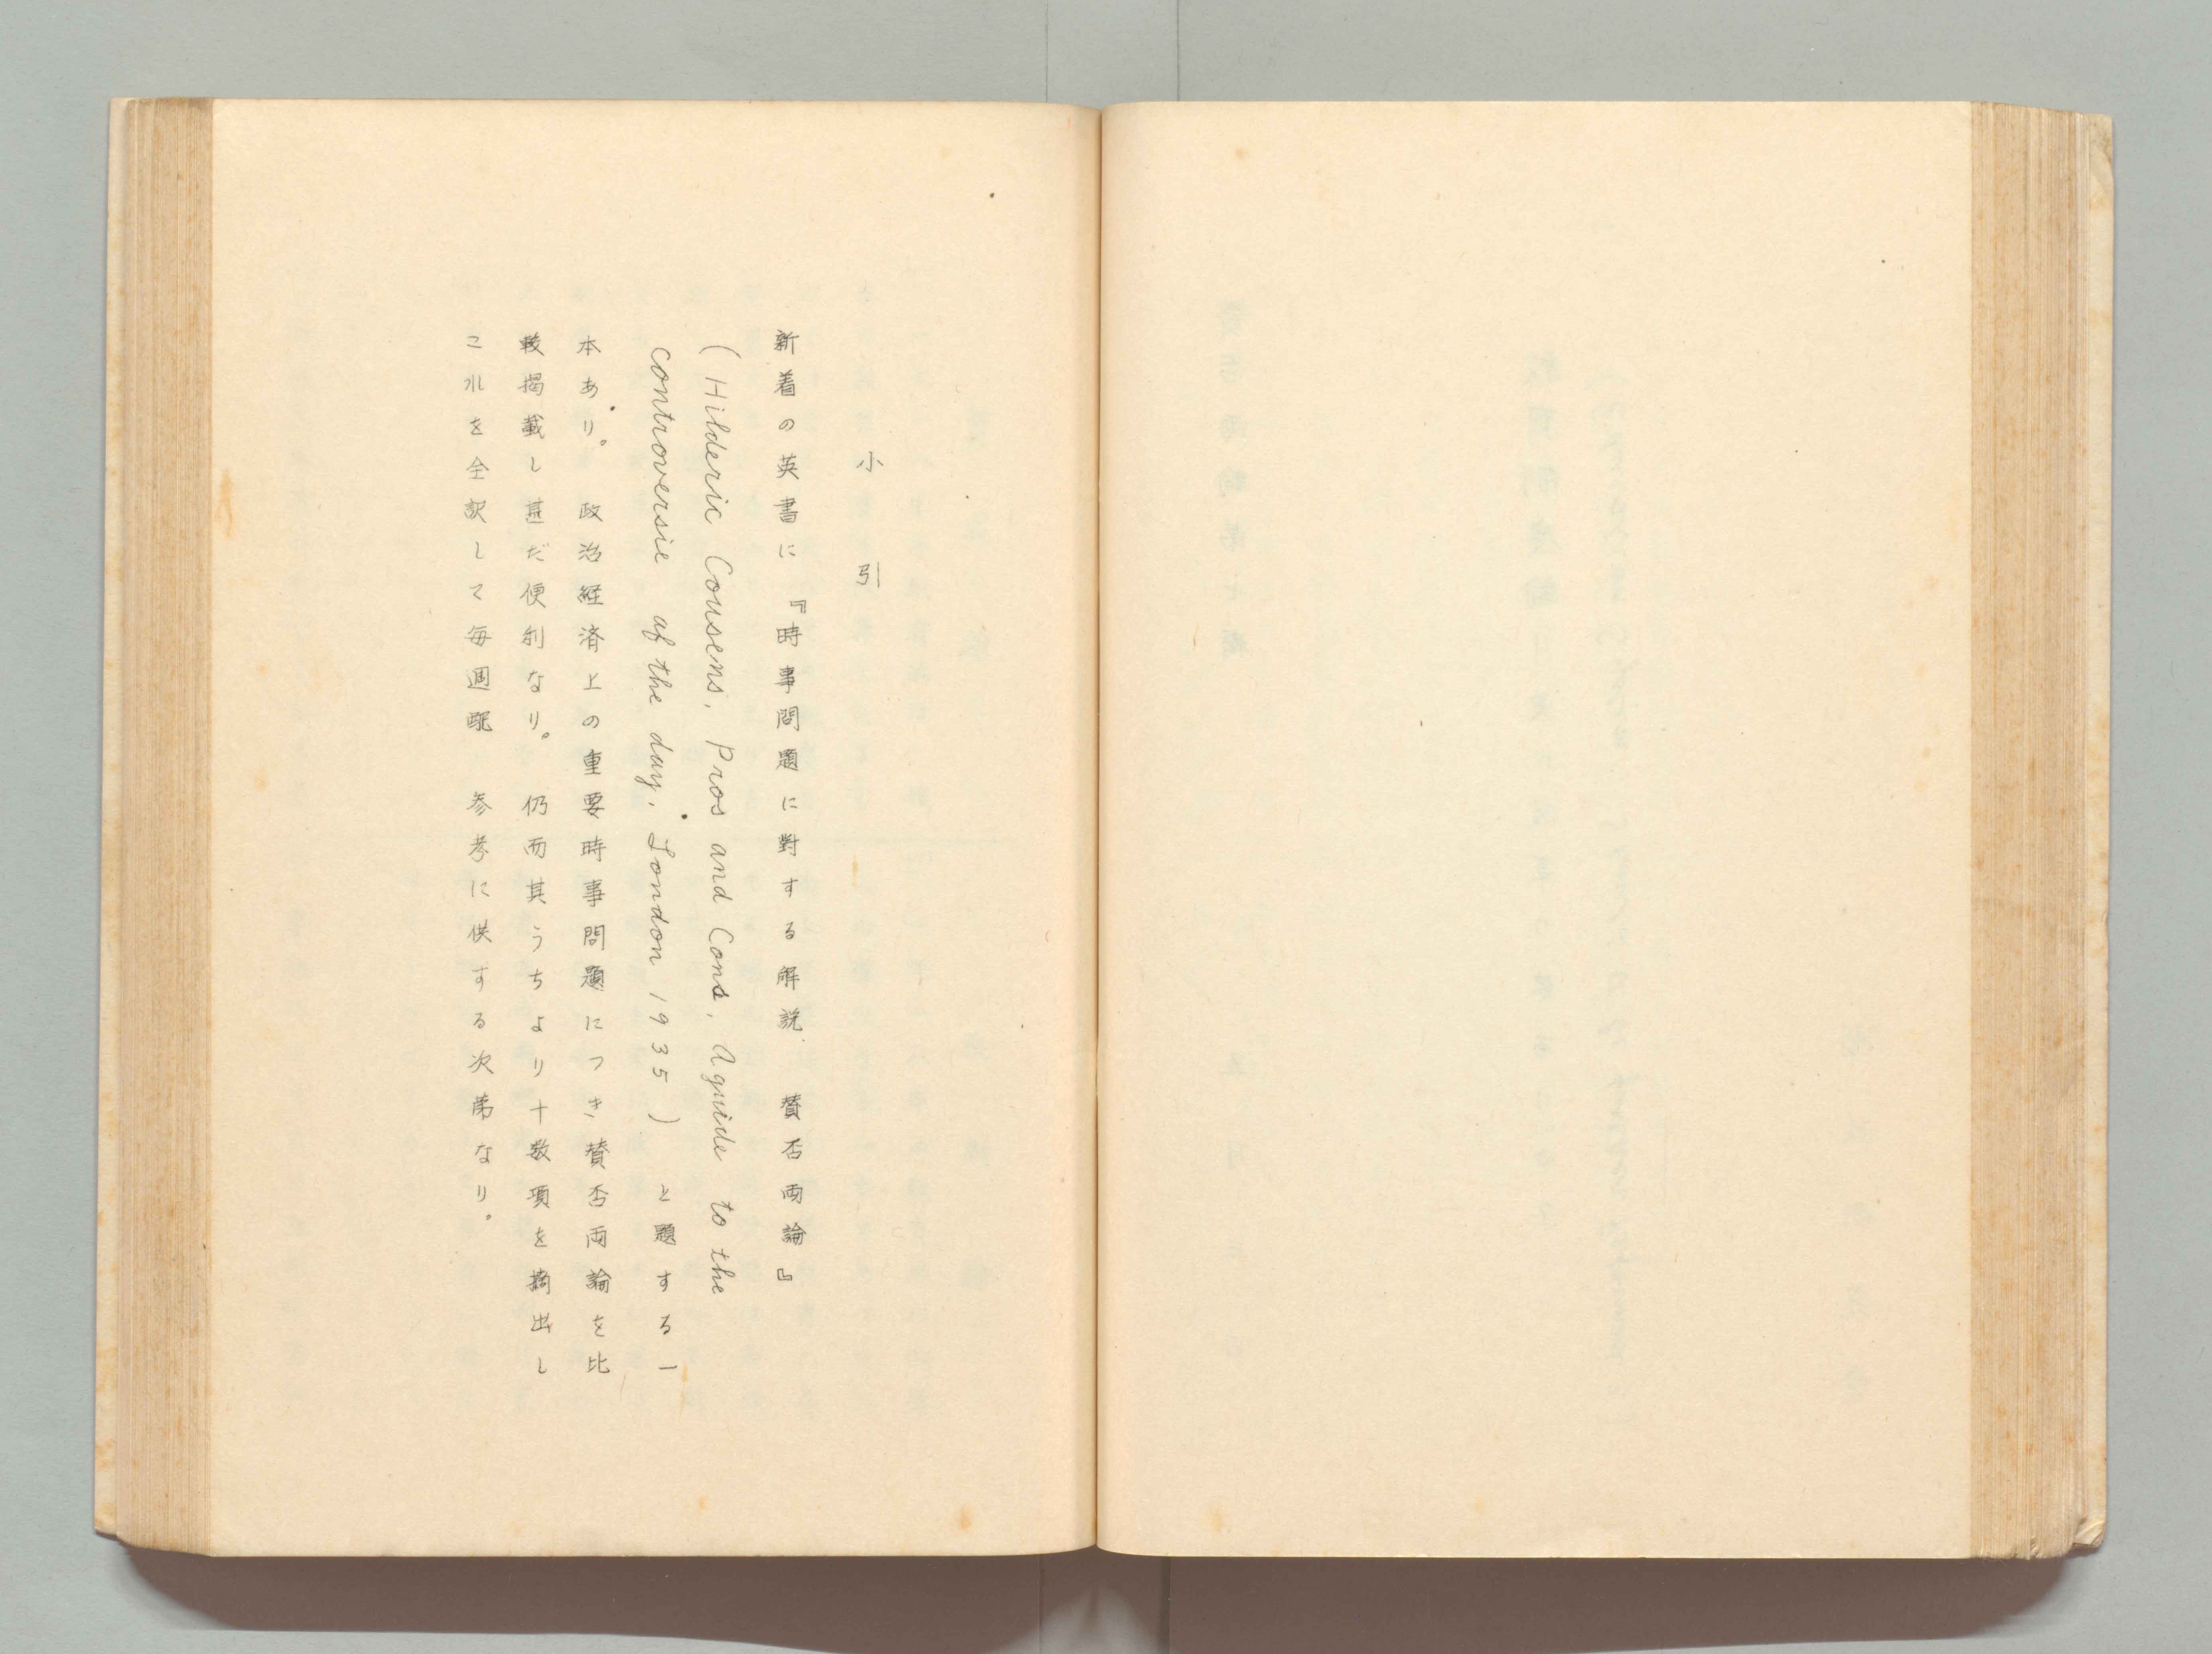 小引
新着の英書に『時事問題に對する解説 賛否両論』
(Hilderic Cousens, Pros and Cons, Aguide to the
controversie of the day, London 1935) と題する一
本あり。 政治経済上の重要時事問題につき賛否両論を比
較掲載し甚だ便利なり。 仍而其うちより十数項を摘出し
これを全訳して毎週配 参考に供する次第なり。